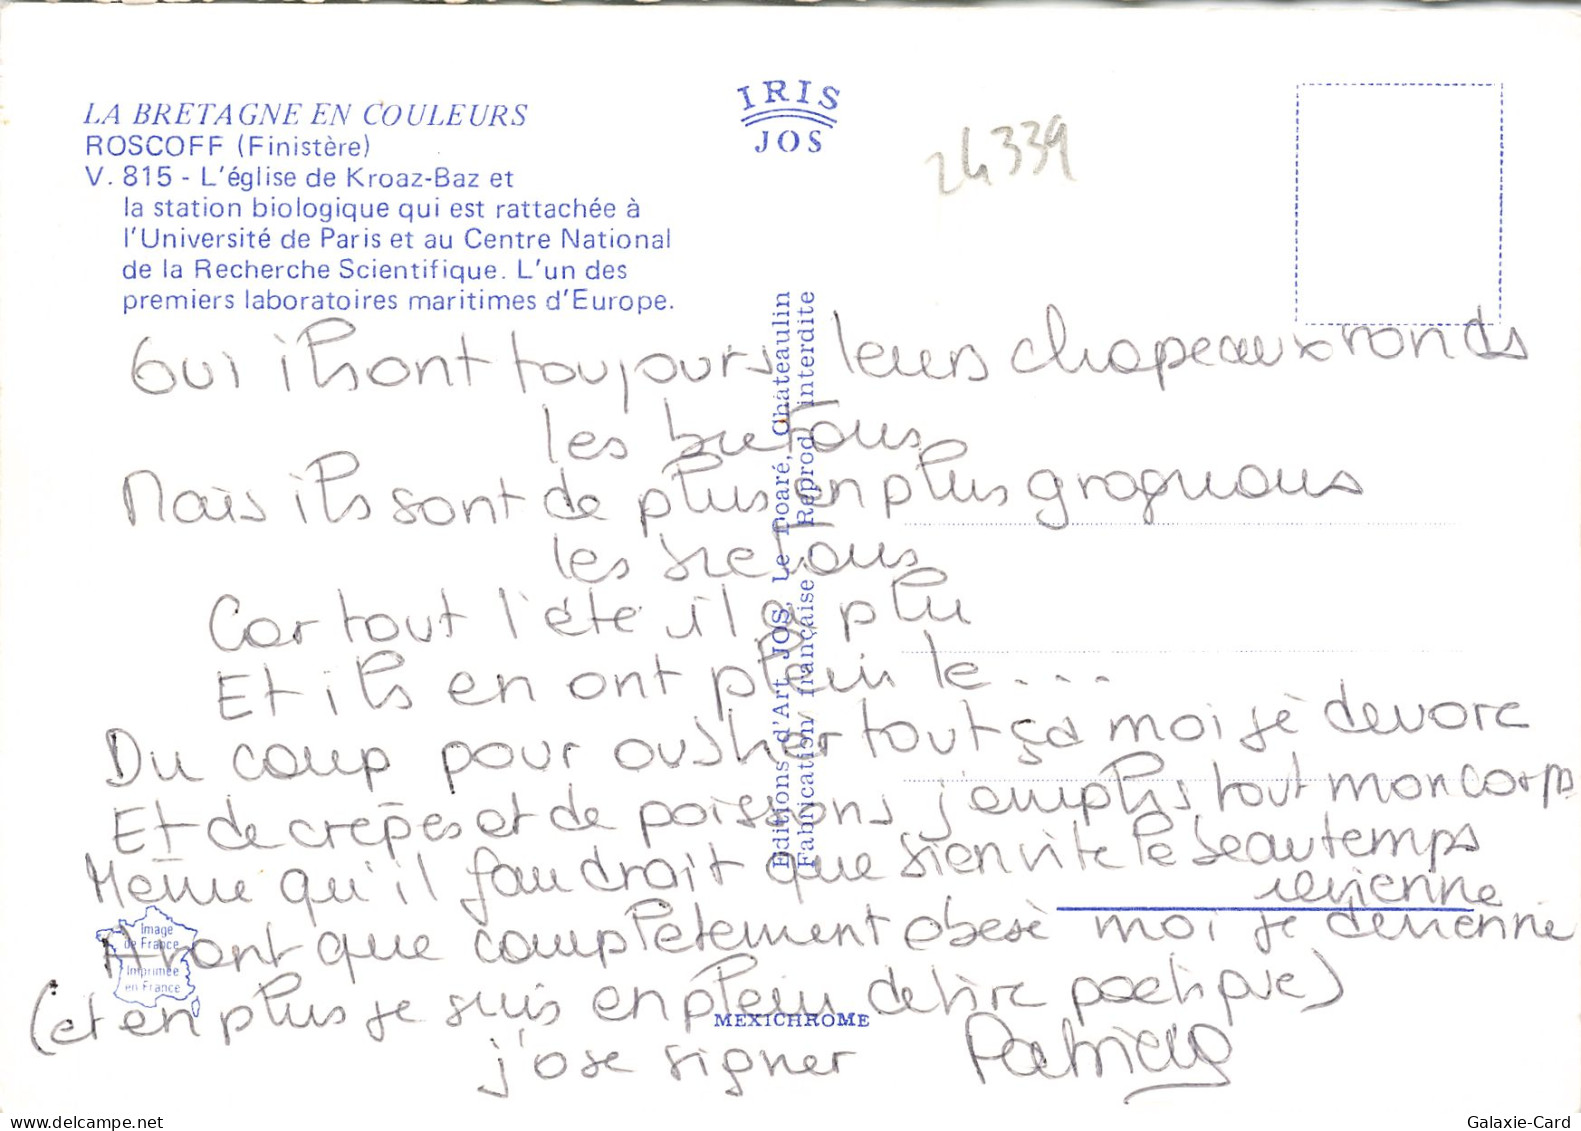 LA BRETAGNE EN COULEURS
ROSCOFF (Finistère)
V. 815 - L'église de Kroaz-Baz et
la station biologique qui est rattachée à
l'Université de Paris et au Centre National
de la Recherche Scientifique. L'un des
premiers laboratoires maritimes d'Europe.
IRIS
JOS
24339
Editions d'Art JOS, Le Doaré, Châteaulin
Fabrication française Reprod interdite
Oui ils ont toujours leurs chapeaux ronds
les bretons
Mais ils sont de plus en plus grognons
les bretons
Car tout l'été il a plu
Et ils en ont plein le ...
Du coup pour oublier tout ça moi je dévore
Et de crêpes et de poissons j'emplis tout mon corps
Même qu'il faudrait que bien vite le beau temps
revienne
Avant que complètement obèse moi je devienne
(et en plus je suis en plein délire poétique)
j'ose signer
Image
de France
Imprimée
en France
MEXICHROME
www.delcampe.net
Galaxie-Card